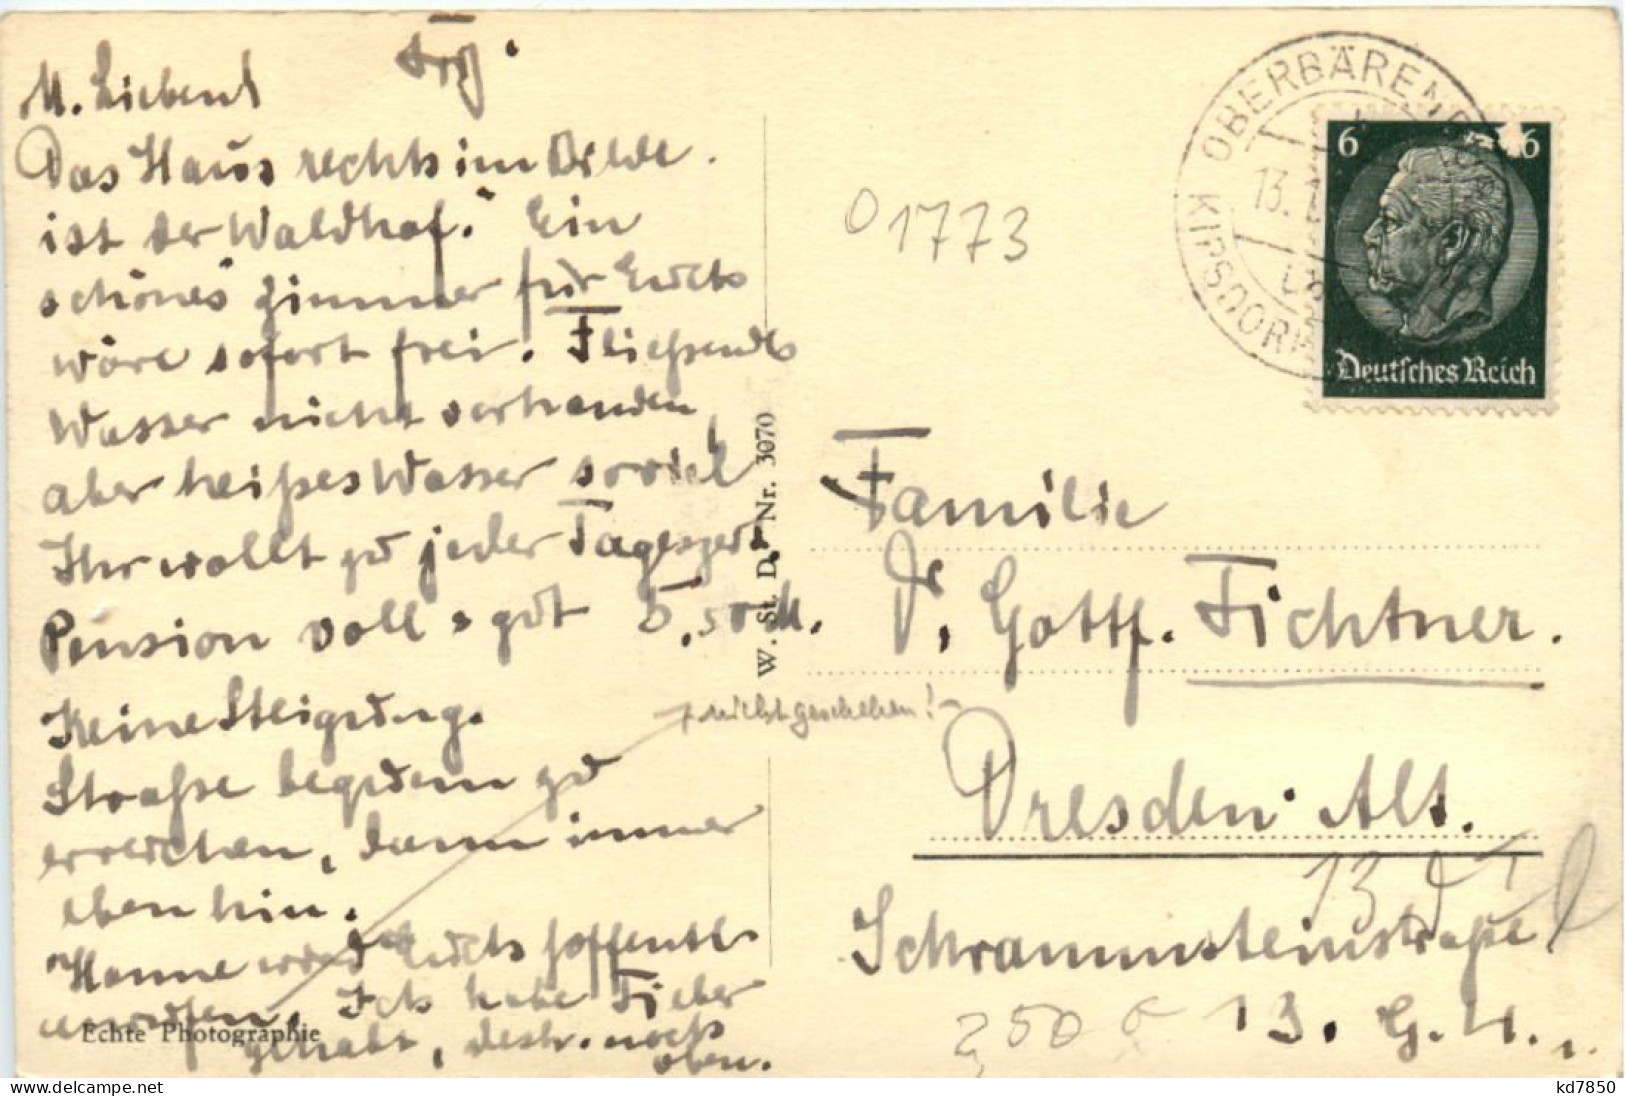 Frg.
M. Lieben!
Das Haus rechts im Bilde.
ist der "Waldhof." Ein
schönes Zimmer für Euch
wäre sofort frei. Fließendes
Wasser nicht vorhanden,
aber heißes Wasser soviel
Ihr wollt zu jeder Tageszeit.
Pension voll u gut 5,50 M.
Keine Steigung.
Straße bequem zu
erreichen, dann immer
eben hin.
Hanne wird Euch hoffentl
anrufen. Ich habe Fieber
gehabt, desh. noch
oben.
nicht geschehen!
Echte Photographie
W. St. D. Nr. 3070
01773
OBERBÄREN
KIPSDORF
13.
6 6
Deutsches Reich
Familie
Dr. Gottf. Fichtner.
Dresden Alt.
13
Schrammsteinstraße
13. G.H.
250
kd7850